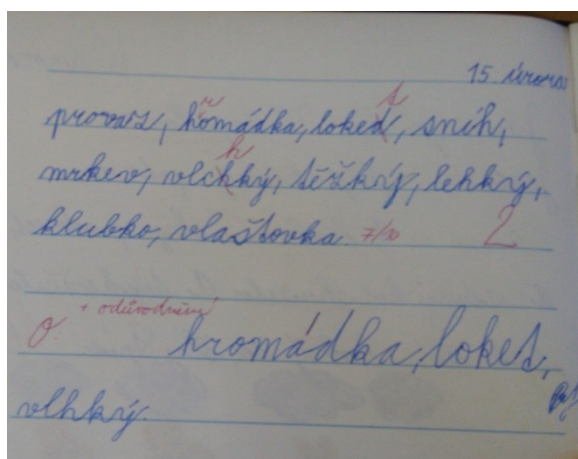 15. února
provaz, homádka, loked, sníh,
mrkev, vlchký, těžký, lehký,
klubko, vlaštovka. 7/10 2
o. + odůvodnění
hromádka, loket,
vlhký.